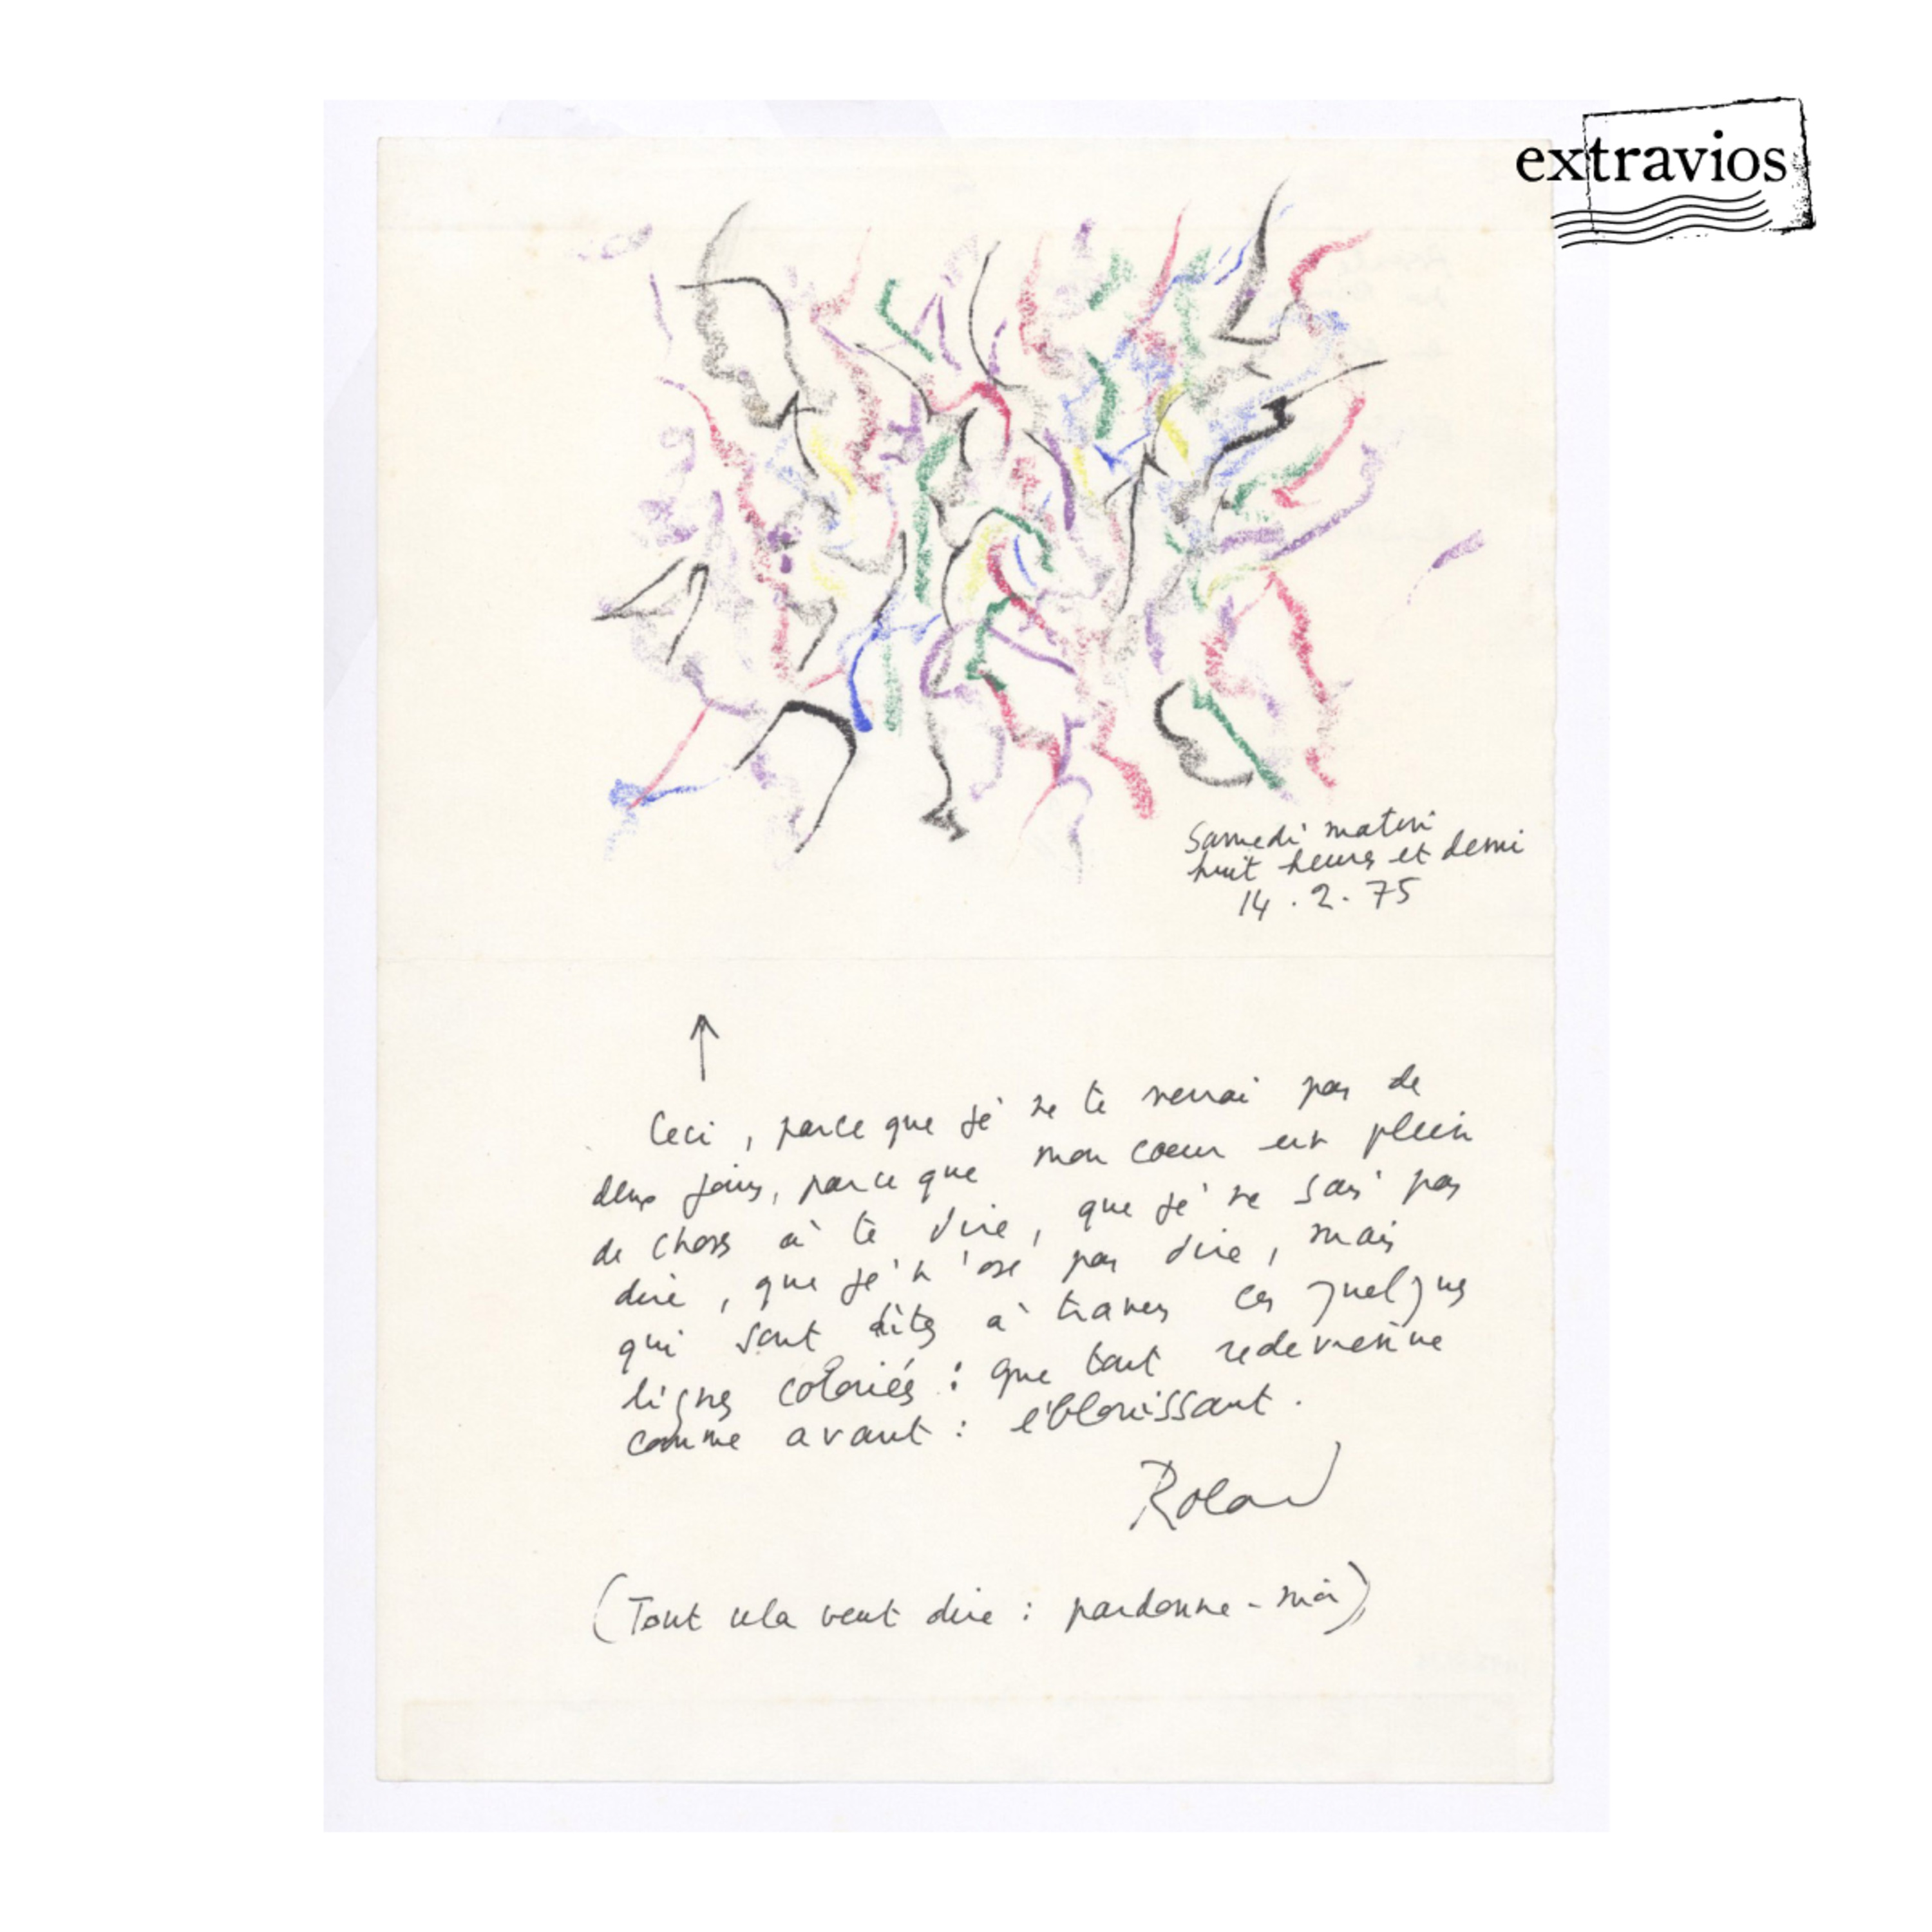 extravios
Samedi matin
huit heures et demi
14.2.75
↑
Ceci, parce que je ne te verrai pas de
deux jours, parce que mon coeur est plein
de choses à te dire, que je ne sais pas
dire, que je n'ose pas dire, mais
qui sont dites à travers ces quelques
lignes coloriés : que tout redevienne
comme avant : éblouissant.
Roland
(Tout cela veut dire : pardonne-moi)